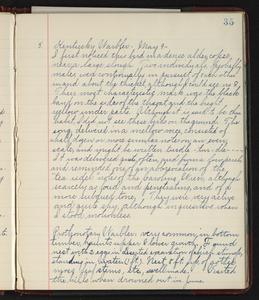 35
5. Kentucky Warbler. May 9-
I first noticed this bird in a dense alder copse,
along a large slough. Two individuals, probably
males were continually in pursuit of each other
in and about the thicket although I could see no ♀.
Their most characteristic mark was the black
band on the sides of the throat and the bright
yellow under parts. Although it is said to be
I did not see these birds on the ground. The
song, delivered in a mellow voice, consists of
half a dozen or more similar notes on an even
scale and might be written
It was delivered quite often, and from a
and reminded me of an abbreviation of the
notes of the Carolina Wren, although
scarcely as loud and penetrating, and of a
more subdued tone. They were very active
and quite shy, although inquisitive when
I stood motionless.
Prothonotary Warbler. very common in bottom
timber, haunts upper & lower growth. Found
nest with 5 eggs in deserted excavation of
standing in water (4 ft). Nest
moss, leaf stems, etc, well made. Visited
the hills when drowned out in June.